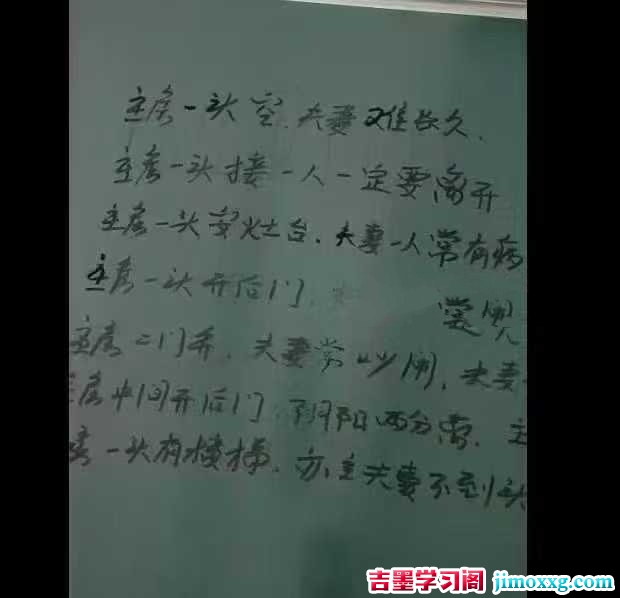 主房一头空.夫妻难长久.
主房一头接一人一定要离开
主房一头安灶台.夫妻一人常有病
主房一头开后门.
主房二门弃.夫妻常吵闹.夫妻
房中间开后门.阴阳两分离.主
一头有楼梯.亦主夫妻不到头
吉墨学习阁 jimoxxg.com